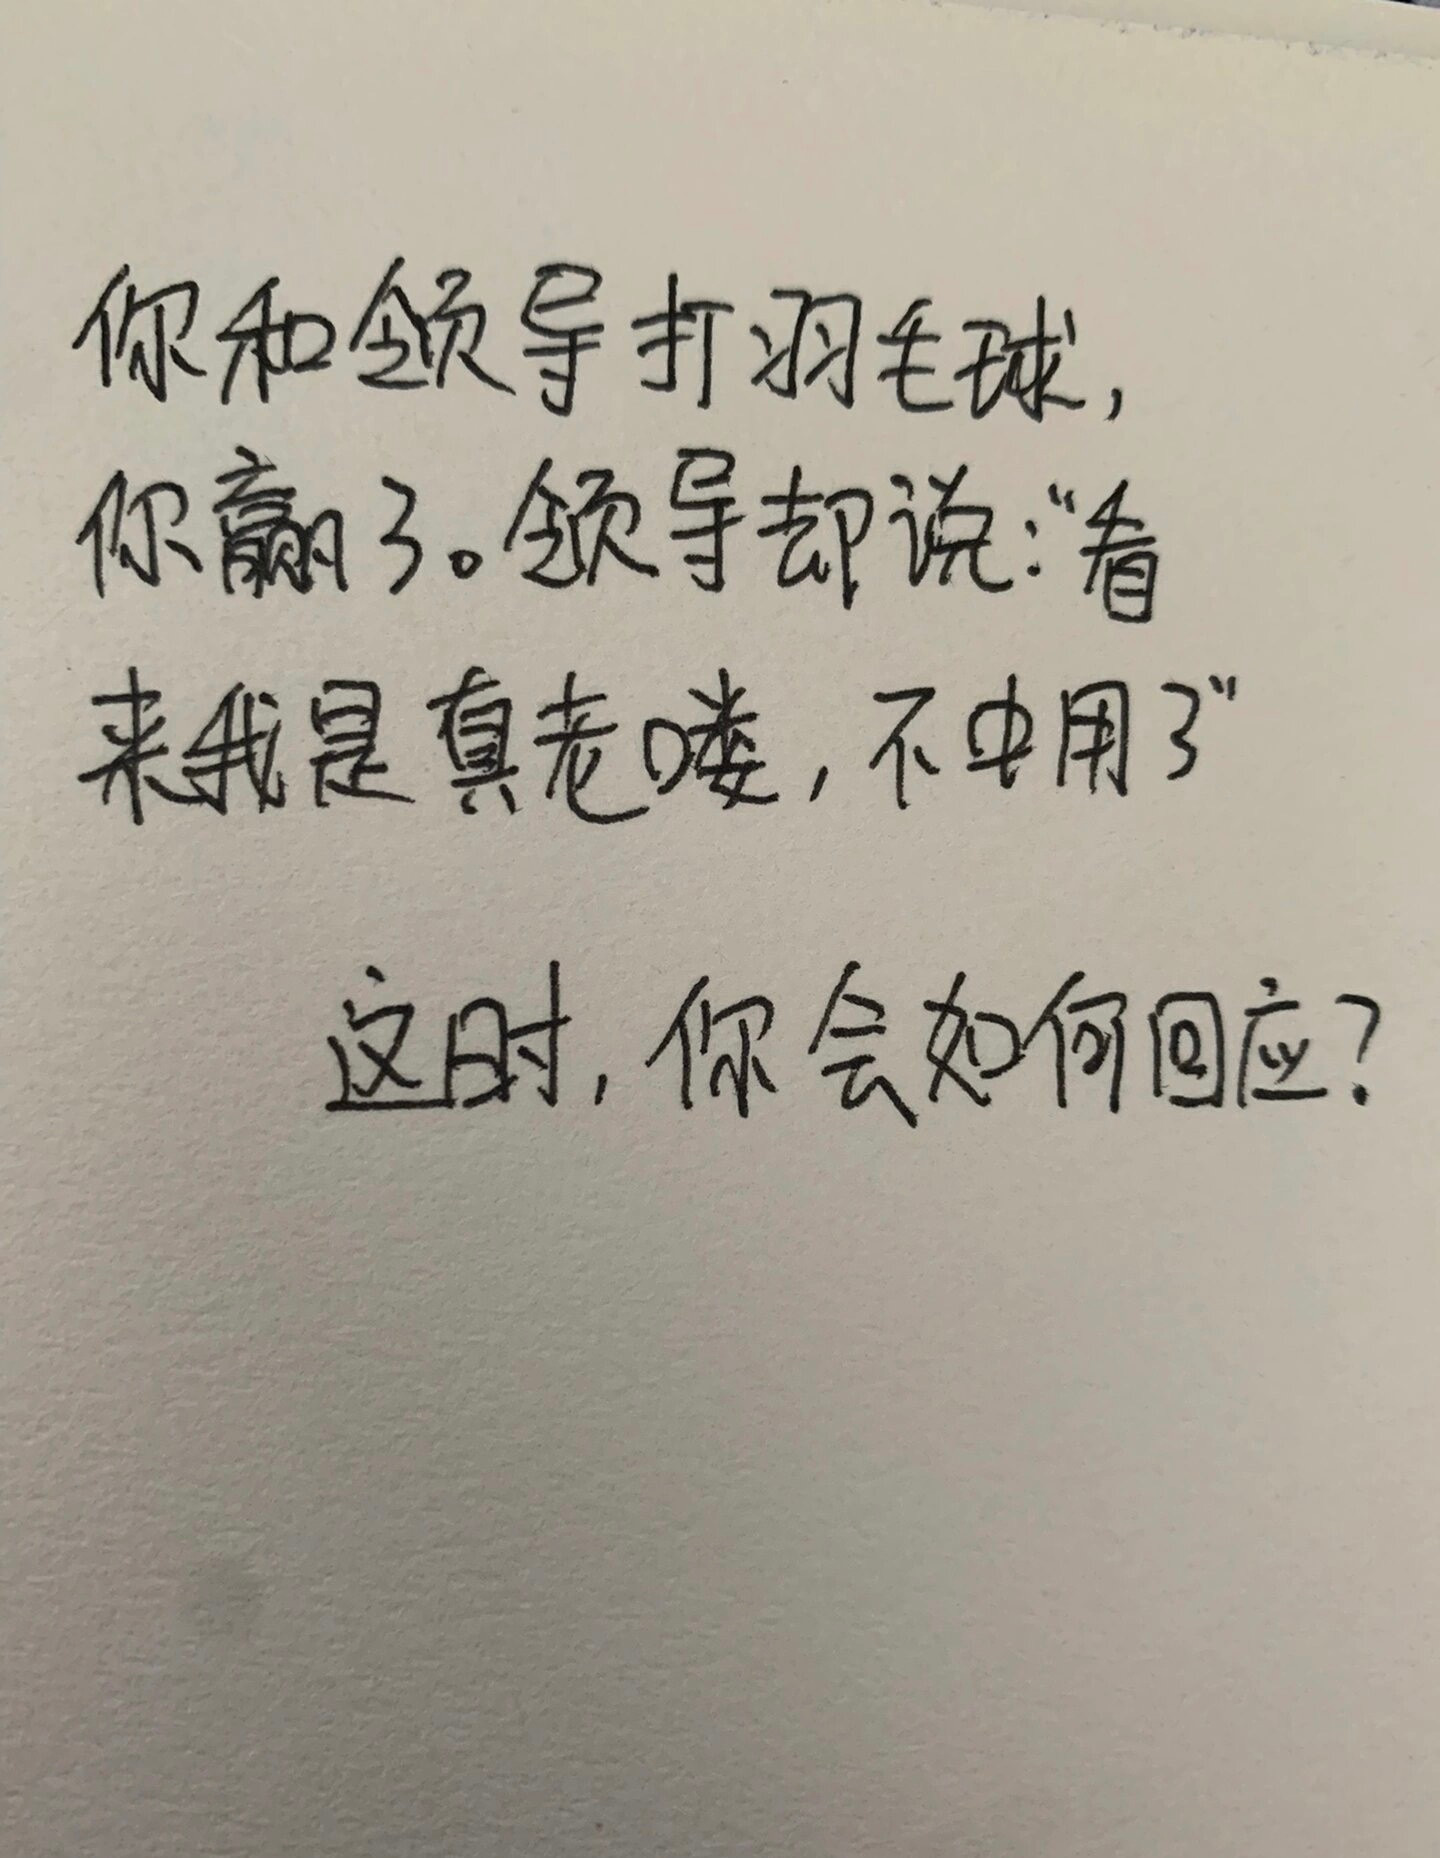 你和领导打羽毛球，
你赢了。领导却说：“看
来我是真老喽，不中用了”
这时，你会如何回应？